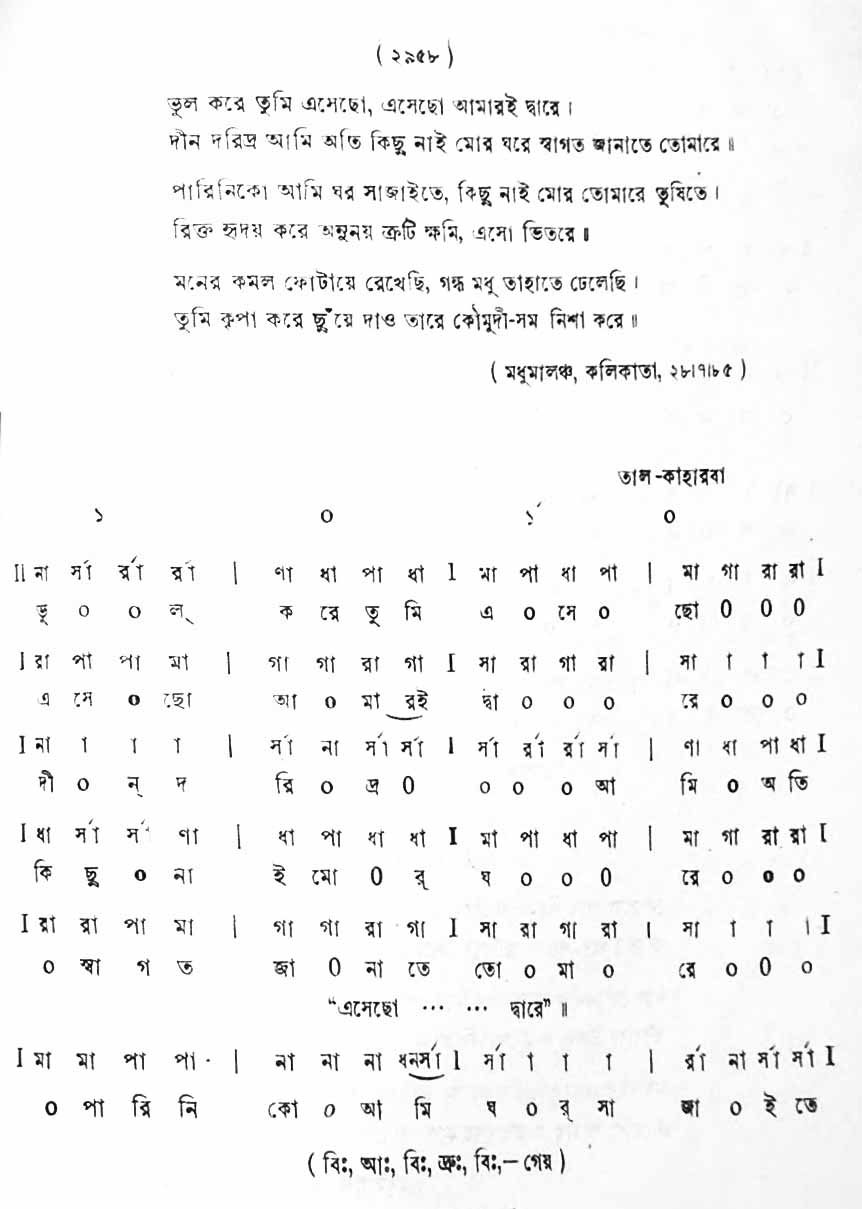 ( ২৯৫৮ )
ভুল করে তুমি এসেছো, এসেছো আমারই দ্বারে ।
দীন দরিদ্র আমি অতি কিছু নাই মোর ঘরে স্বাগত জানাতে তোমারে ॥
পারিনিকো আমি ঘর সাজাইতে, কিছু নাই মোর তোমারে তুষিতে ।
রিক্ত হৃদয় করে অনুনয় ত্রুটি ক্ষমি, এসো ভিতরে ॥
মনের কমল ফোটায়ে রেখেছি, গন্ধ মধু তাহাতে ঢেলেছি ।
তুমি কৃপা করে ছুঁয়ে দাও তারে কৌমুদী-সম নিশা করে ॥
( মধুমালঞ্চ, কলিকাতা, ২৮।৭।৮৫ )
তাল-কাহারবা
১ ০ ১́ ০
II না র্সা র্রা র্রা | ণা ধা পা ধা I মা পা ধা পা | মা গা রা রা I
ভু ০ ০ ল্ ক রে তু মি এ ০ সে ০ ছো ০ ০ ০
I রা পা পা মা | গা গা রা গা I সা রা গা রা | সা া া া I
এ সে ০ ছো আ ০ মা রই দ্বা ০ ০ ০ রে ০ ০ ০
I না া া া | র্সা না র্সা র্সা I র্সা র্রা র্রা র্সা | ণা ধা পা ধা I
দী ০ ন্ দ রি ০ দ্র ০ ০ ০ ০ আ মি ০ অ তি
I ধা র্সা র্সা ণা | ধা পা ধা ধা I মা পা ধা পা | মা গা রা রা I
কি ছু ০ না ই মো ০ র্ ঘ ০ ০ ০ রে ০ ০ ০
I রা রা পা মা | গা গা রা গা I সা রা গা রা । সা া া । I
০ স্বা গ ত জা ০ না তে তো ০ মা ০ রে ০ ০ ০
“এসেছো ... ... দ্বারে” ॥
I মা মা পা পা | না না না ধনর্সা I র্সা া া া | র্রা না র্সা র্সা I
০ পা রি নি কো ০ আ মি ঘ ০ র্ সা জা ০ ই তে
( বিঃ, আঃ, বিঃ, দ্রুঃ, বিঃ,– গেয় )